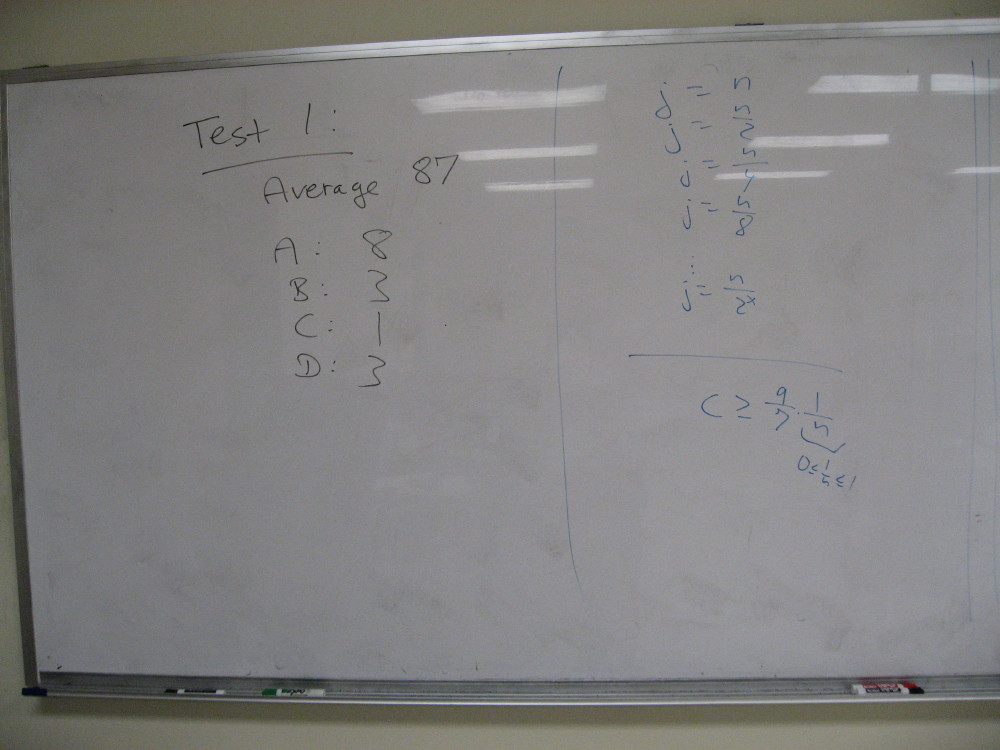 Test 1:
Average 87
A: 8
B: 3
C: 1
D: 3
j = n
j = n/2
j = n/4
j = n/8
...
j = n/2^x
C ≥ 9/7 · 1/n
0 ≤ 1/n ≤ 1